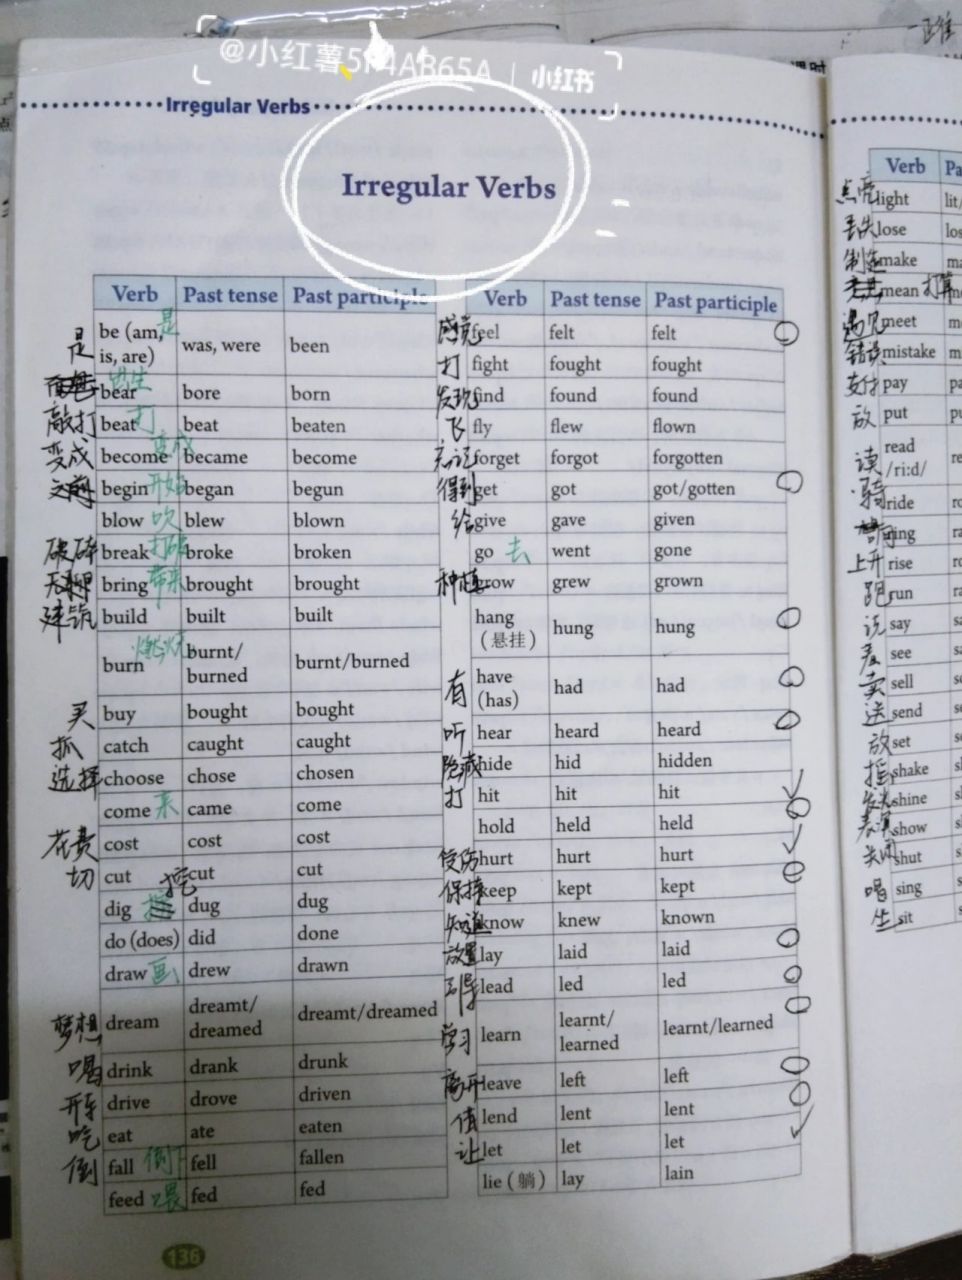 @小红薯5F4AB65A | 小红书
Irregular Verbs
Irregular Verbs
Verb Past tense Past participle
是 be (am, is, are) 是 was, were been
出生 bear bore born
敲打 beat 打 beat beaten
变成 become 变成 became become
begin 开始 began begun
blow 吹 blew blown
破碎 break 打破 broke broken
bring 带来 brought brought
建筑 build built built
burn 燃烧 burnt/ burned burnt/burned
买 buy bought bought
抓 catch caught caught
选择 choose chose chosen
come 来 came come
花费 cost cost cost
切 cut cut cut
dig 挖 dug dug
do (does) did done
draw 画 drew drawn
梦想 dream dreamt/ dreamed dreamt/dreamed
喝 drink drank drunk
开车 drive drove driven
吃 eat ate eaten
倒 fall 倒下 fell fallen
feed 喂 fed fed
Verb Past tense Past participle
感觉 feel felt felt
打 fight fought fought
发现 find found found
飞 fly flew flown
忘记 forget forgot forgotten
得到 get got got/gotten
给 give gave given
go 去 went gone
种植 grow grew grown
hang (悬挂) hung hung
有 have (has) had had
听 hear heard heard
隐藏 hide hid hidden
打 hit hit hit
hold held held
受伤 hurt hurt hurt
保持 keep kept kept
知道 know knew known
放置 lay laid laid
引导 lead led led
学习 learn learnt/ learned learnt/learned
离开 leave left left
借 lend lent lent
让 let let let
lie (躺) lay lain
136
课时
Verb Pa
点亮 light lit/
丢失 lose los
制造 make ma
mean 打算
遇见 meet
错误 mistake
支付 pay pa
放 put pu
读 read /ri:d/ re
骑 ride
ring
上升 rise
跑 run
说 say sa
see
卖 sell
送 send
放 set
摇 shake
发光 shine
表演 show
关闭 shut
唱 sing
坐 sit